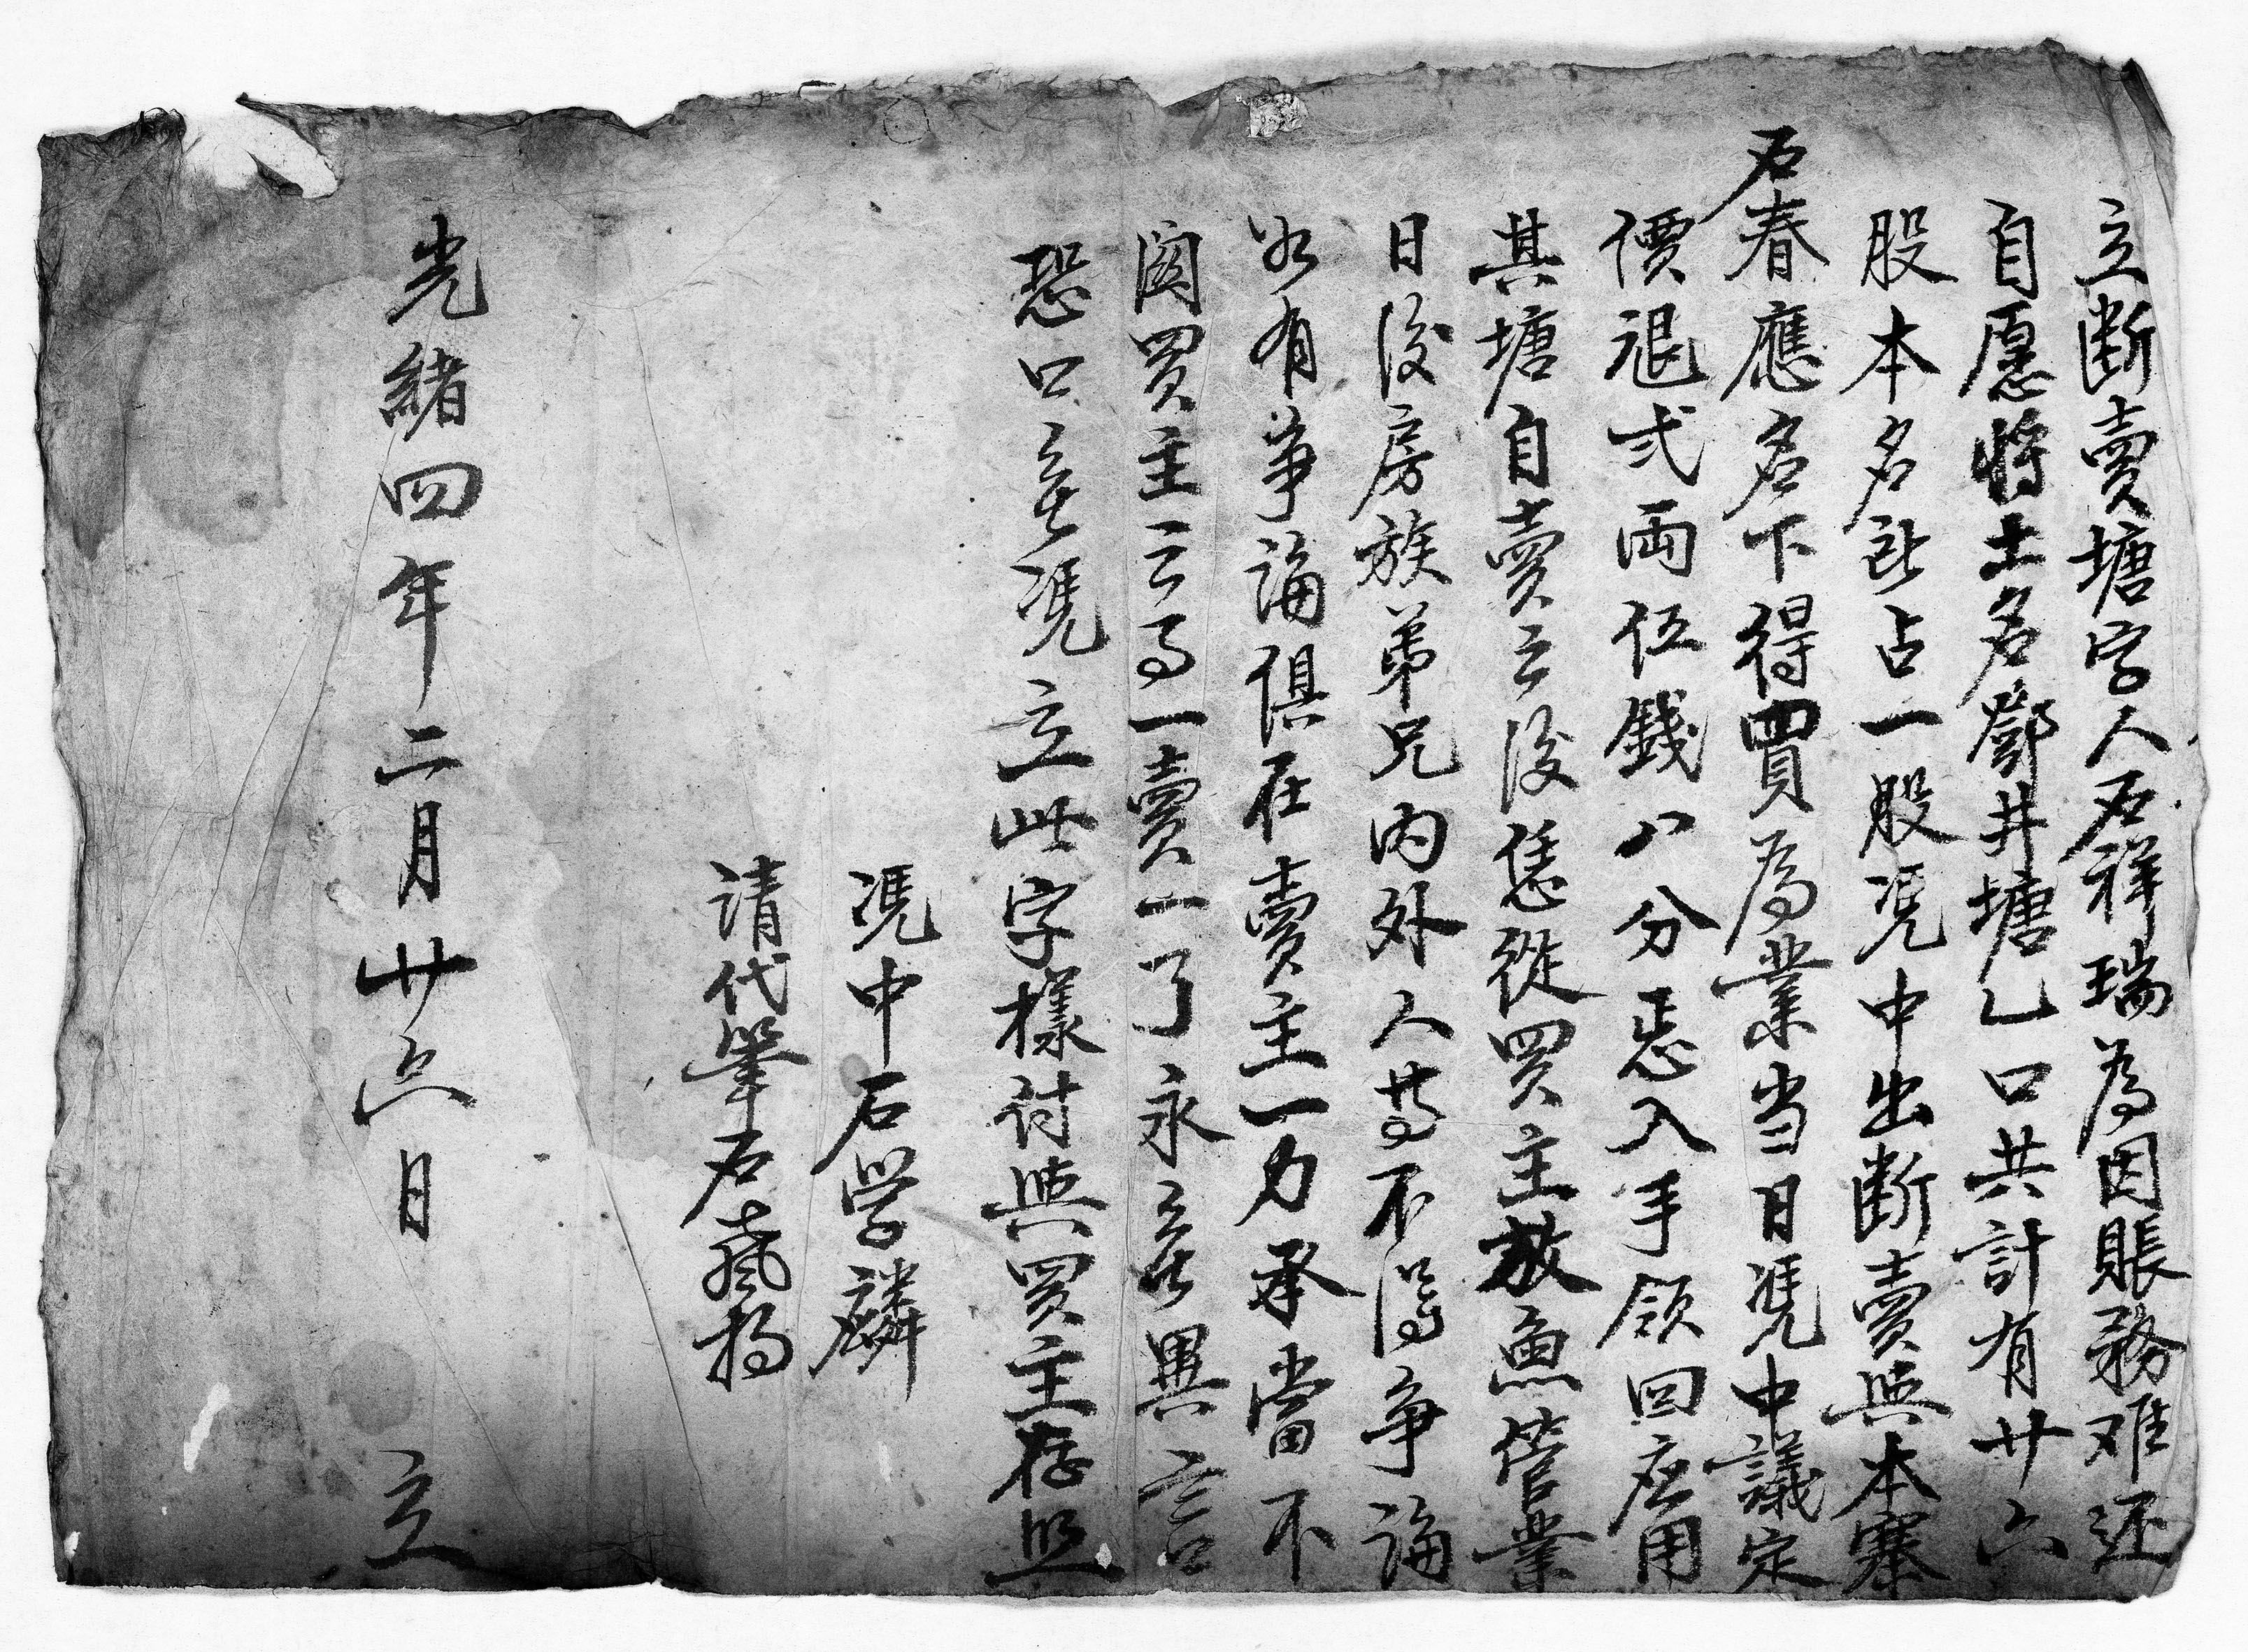 立断賣塘字人石祥瑞為因賬務难还
自愿将土名鄧井塘乙口共計有廿六
股本名趾占一股凴中出断賣與本寨
石春應名下得買為業当日凴中議定
價退弍両伍錢八分悉入手領回应用
其塘自賣之後恁從買主放魚管業
日後房族弟兄内外人等不得爭論
如有爭論俱在賣主一力承當不
関買主之事一賣一了永無異言
恐口無凴立此字樣付與買主存照
凴中石学麟
請代筆石
光緒四年二月廿六日 立